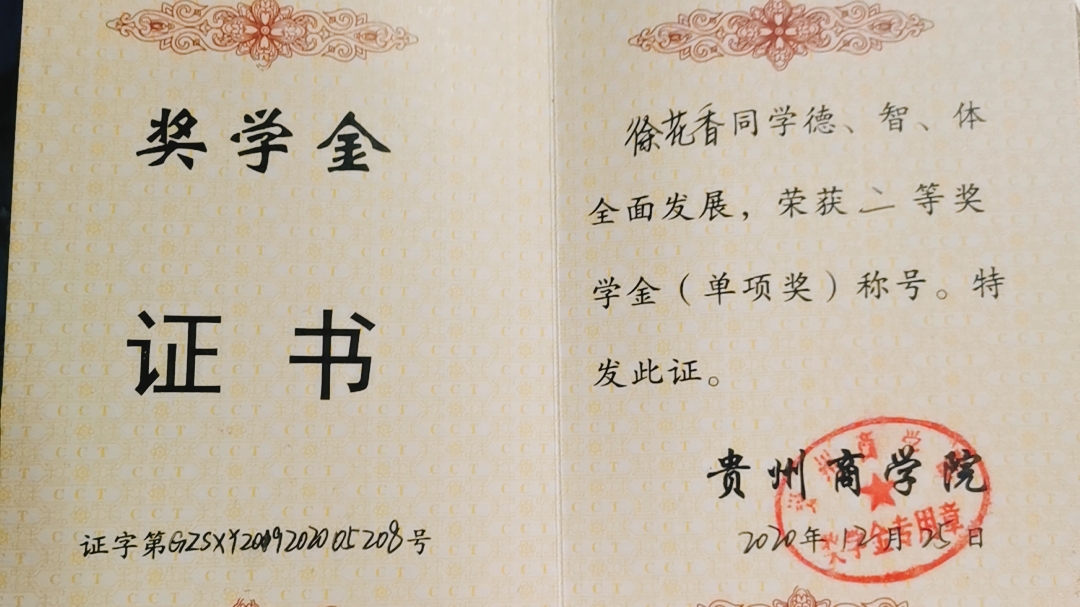 奖学金
证书
证字第GZSXY2019202005208号
徐花香同学德、智、体
全面发展，荣获二等奖
学金（单项奖）称号。特
发此证。
贵州商学院
2020年12月25日
奖学金专用章